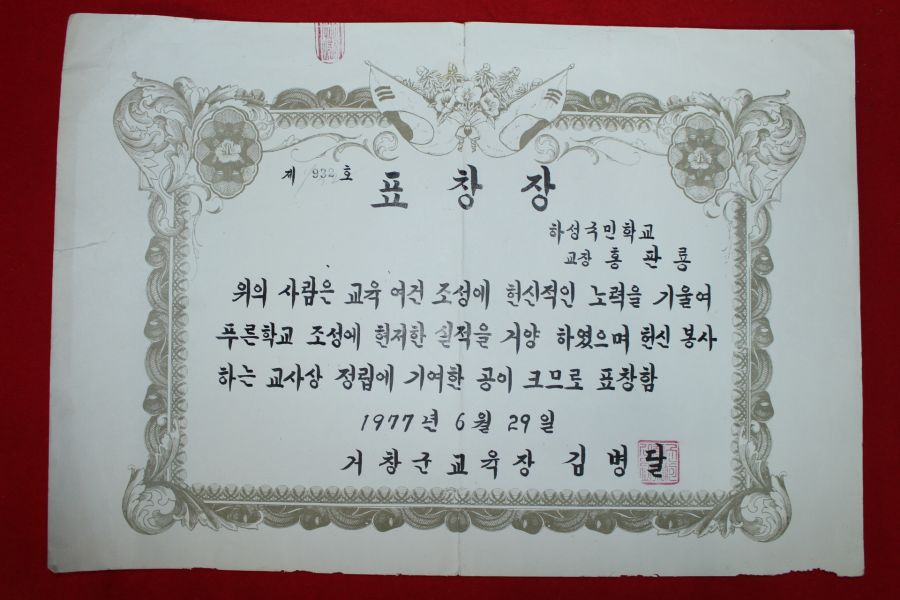 제 932 호
표 창 장
하성국민학교
교장 홍 판 룡
위의 사람은 교육 여건 조성에 헌신적인 노력을 기울여
푸른학교 조성에 현저한 실적을 거양 하였으며 헌신 봉사
하는 교사상 정립에 기여한 공이 크므로 표창함
1977년 6월 29일
거창군교육장 김병달